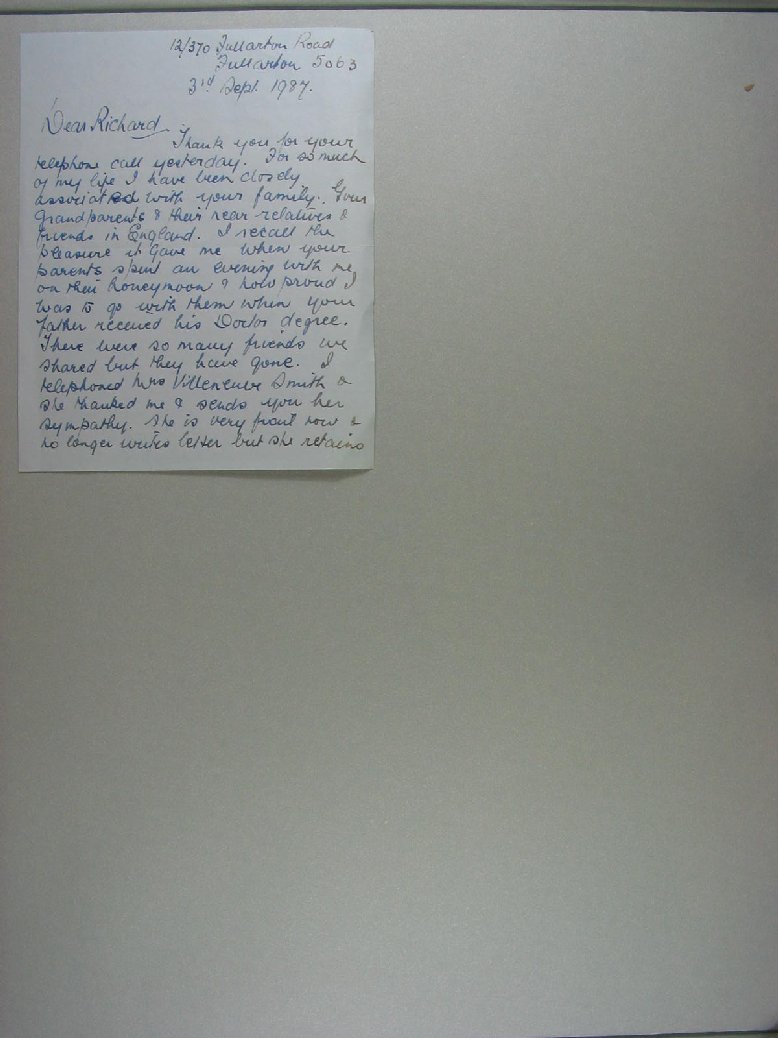 12/370 Fullarton Road
Fullarton 5063
3rd Sept. 1987.
Dear Richard
Thank you for your
telephone call yesterday. For so much
of my life I have been closely
associated with your family. Your
Grandparents & their near relatives &
friends in England. I recall the
pleasure it gave me when your
parents spent an evening with me
on their honeymoon & how proud I
was to go with them when your
father received his Doctor degree.
There were so many friends we
shared but they have gone. I
telephoned Mrs Villeneuve Smith &
she thanked me & sends you her
sympathy. She is very frail now &
no longer writes letter but she retains